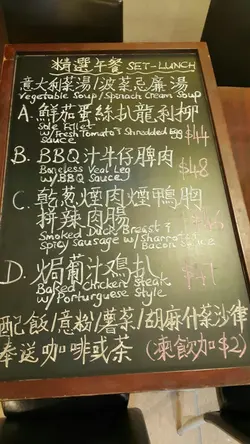 精選午餐 SET-LUNCH
意大利菜湯/菠菜忌廉湯
Vegetable Soup/Spinach Cream Soup
A. 鮮茄蛋絲扒龍利柳
Sole Fillet
w/Fresh Tomato & Shredded Egg
Sauce $44
B. BBQ汁牛仔脾肉
Boneless Veal Leg
w/BBQ Sauce $48
C. 乾葱煙肉煙鴨胸
拼辣肉腸
Smoked Duck Breast &
Spicy Sausage w/Sharrot &
Bacon Sauce
D. 焗葡汁鷄扒 $41
Baked Chicken Steak
w/Porturguese Style
配飯/意粉/薯茶/胡麻什菜沙律
奉送咖啡或茶 (凍飲加$2)